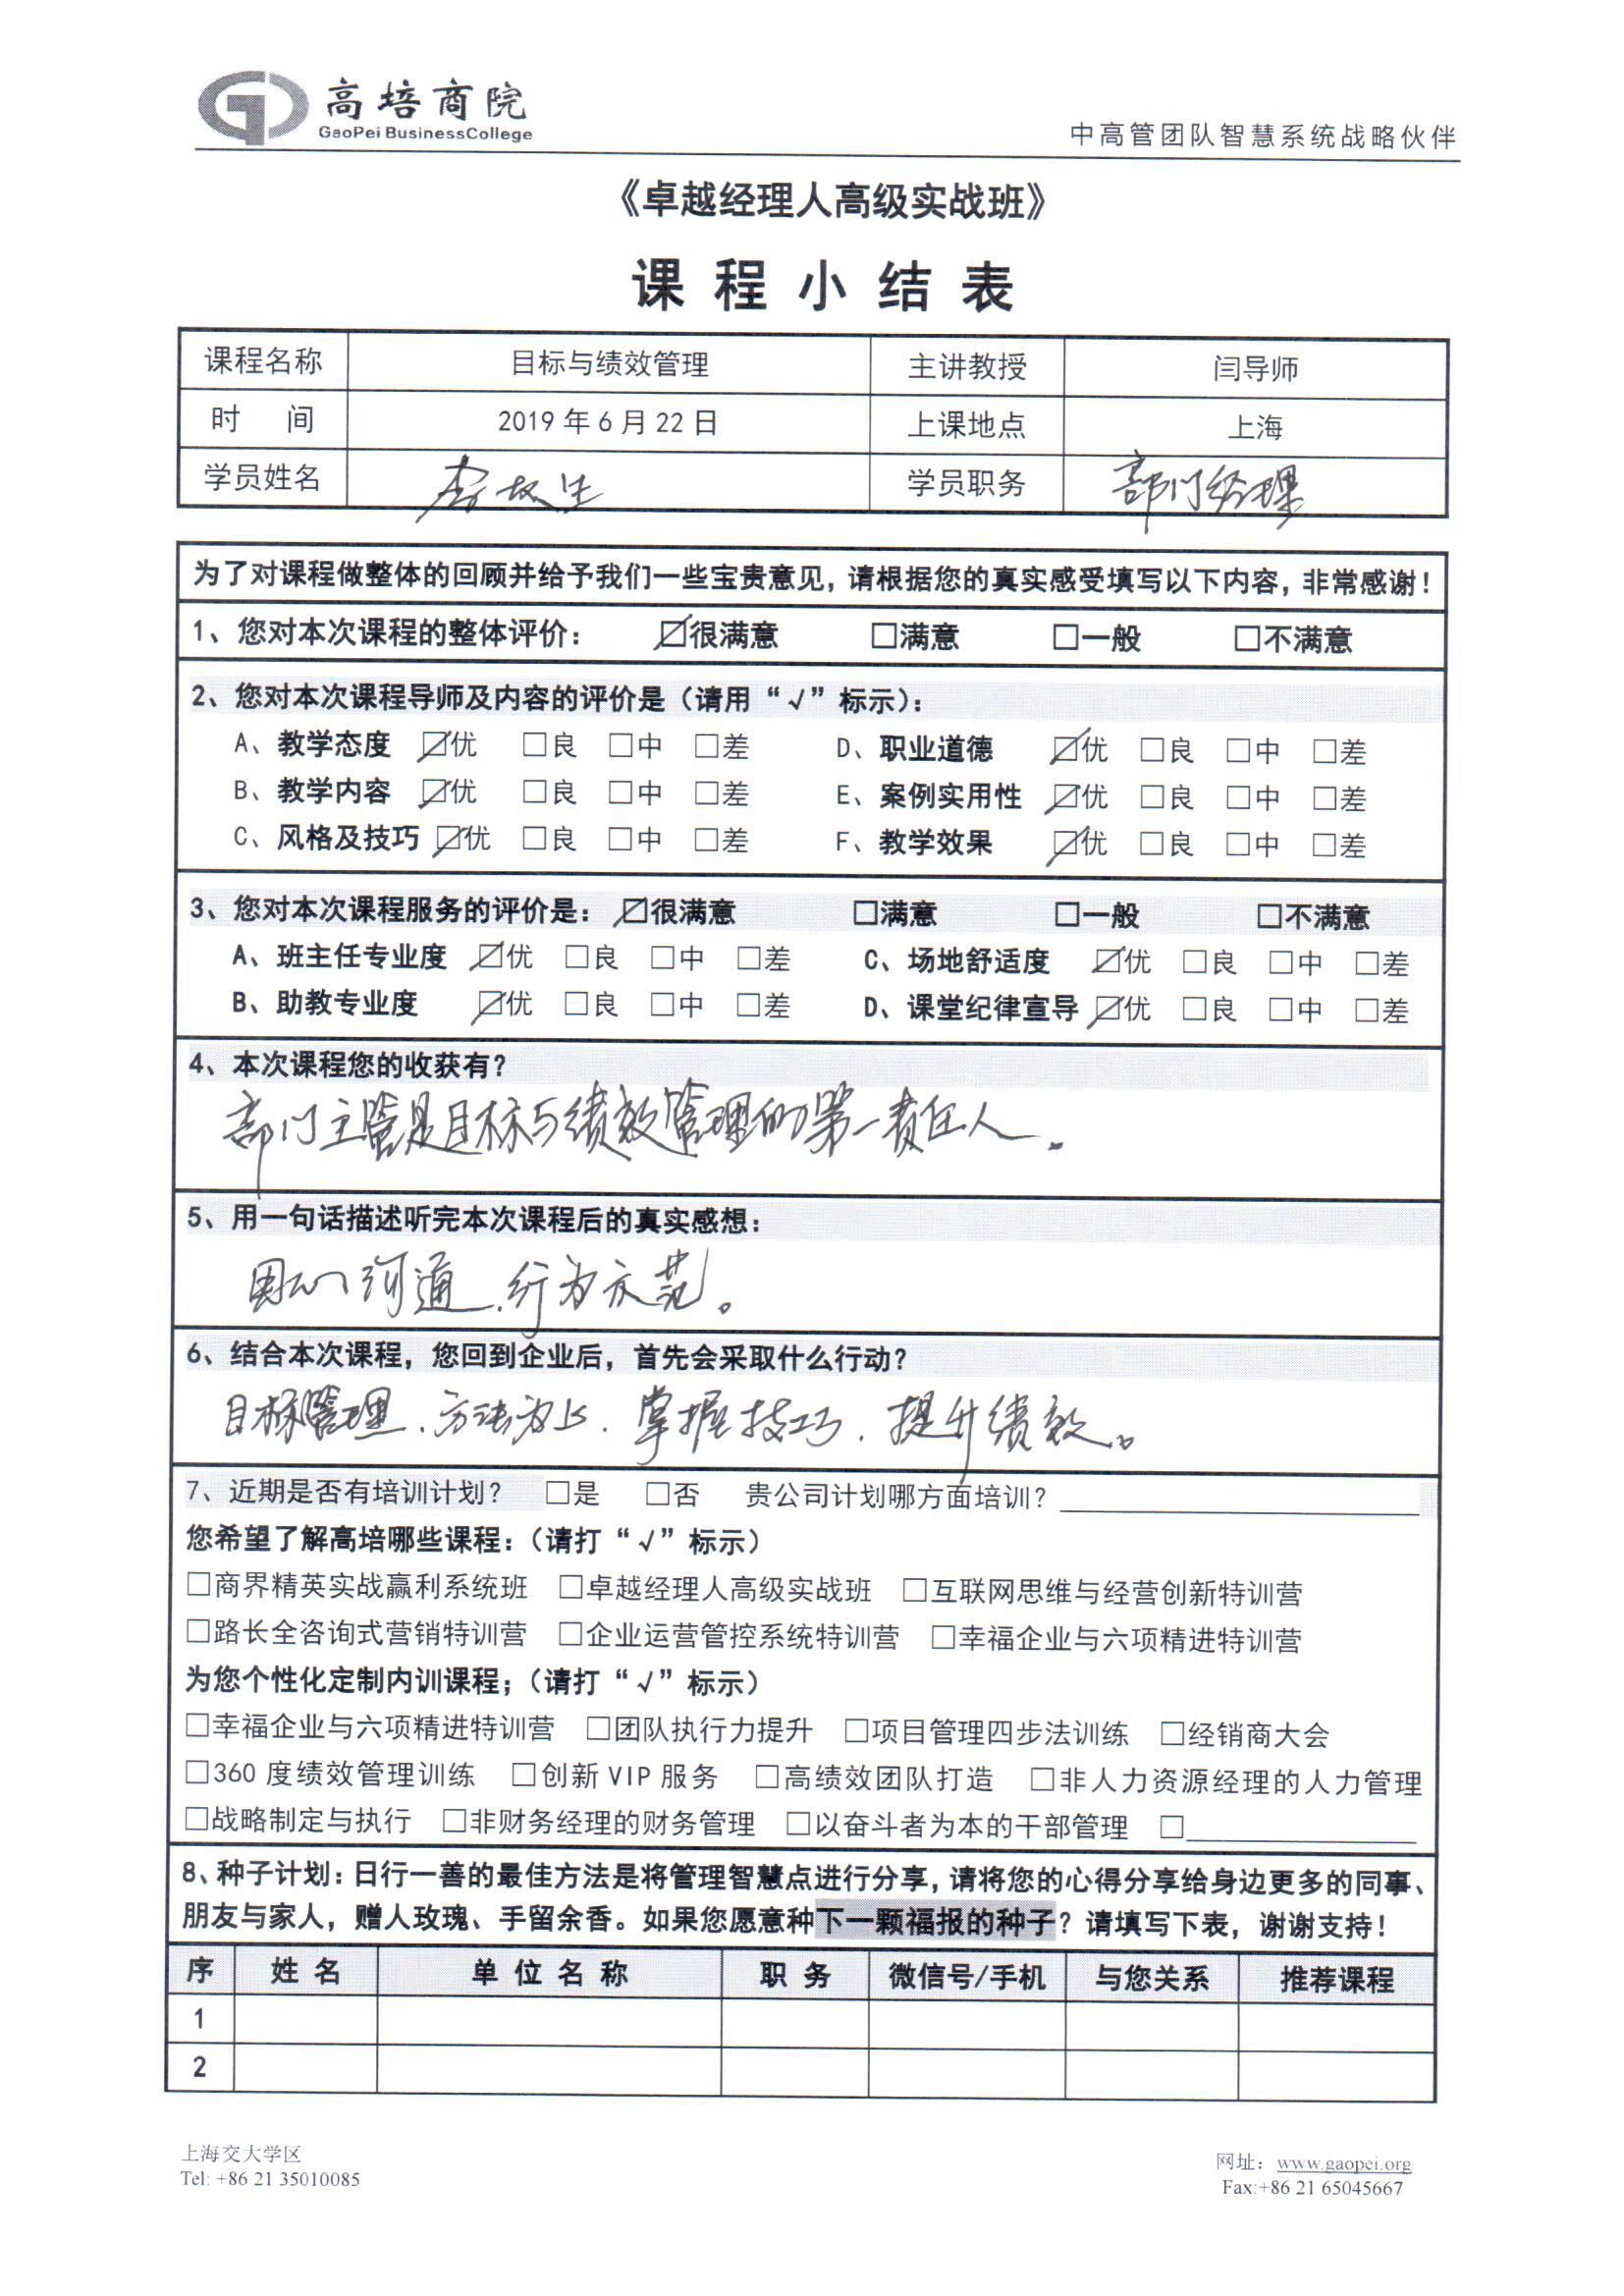 高培商院
GaoPei BusinessCollege
中高管团队智慧系统战略伙伴
《卓越经理人高级实战班》
课程小结表
课程名称 目标与绩效管理 主讲教授 闫导师
时 间 2019 年 6 月 22 日 上课地点 上海
学员姓名 李 生 学员职务 部门经理
为了对课程做整体的回顾并给予我们一些宝贵意见，请根据您的真实感受填写以下内容，非常感谢！
1、您对本次课程的整体评价： ☑很满意 □满意 □一般 □不满意
2、您对本次课程导师及内容的评价是（请用“√”标示）：
A、教学态度 ☑优 □良 □中 □差 D、职业道德 ☑优 □良 □中 □差
B、教学内容 ☑优 □良 □中 □差 E、案例实用性 ☑优 □良 □中 □差
C、风格及技巧 ☑优 □良 □中 □差 F、教学效果 ☑优 □良 □中 □差
3、您对本次课程服务的评价是： ☑很满意 □满意 □一般 □不满意
A、班主任专业度 ☑优 □良 □中 □差 C、场地舒适度 ☑优 □良 □中 □差
B、助教专业度 ☑优 □良 □中 □差 D、课堂纪律宣导 ☑优 □良 □中 □差
4、本次课程您的收获有？
部门主管是目标与绩效管理的第一责任人。
5、用一句话描述听完本次课程后的真实感想：
用心沟通，行为示范。
6、结合本次课程，您回到企业后，首先会采取什么行动？
目标管理，方法为上，掌握技巧，提升绩效。
7、近期是否有培训计划？ □是 □否 贵公司计划哪方面培训？
您希望了解高培哪些课程：（请打“√”标示）
□商界精英实战赢利系统班 □卓越经理人高级实战班 □互联网思维与经营创新特训营
□路长全咨询式营销特训营 □企业运营管控系统特训营 □幸福企业与六项精进特训营
为您个性化定制内训课程；（请打“√”标示）
□幸福企业与六项精进特训营 □团队执行力提升 □项目管理四步法训练 □经销商大会
□360 度绩效管理训练 □创新 VIP 服务 □高绩效团队打造 □非人力资源经理的人力管理
□战略制定与执行 □非财务经理的财务管理 □以奋斗者为本的干部管理 □
8、种子计划：日行一善的最佳方法是将管理智慧点进行分享，请将您的心得分享给身边更多的同事、
朋友与家人，赠人玫瑰、手留余香。如果您愿意种下一颗福报的种子？请填写下表，谢谢支持！
序 姓名 单位名称 职务 微信号/手机 与您关系 推荐课程
1
2
上海交大学区
Tel: +86 21 35010085
网址： www.gaopei.org
Fax:+86 21 65045667